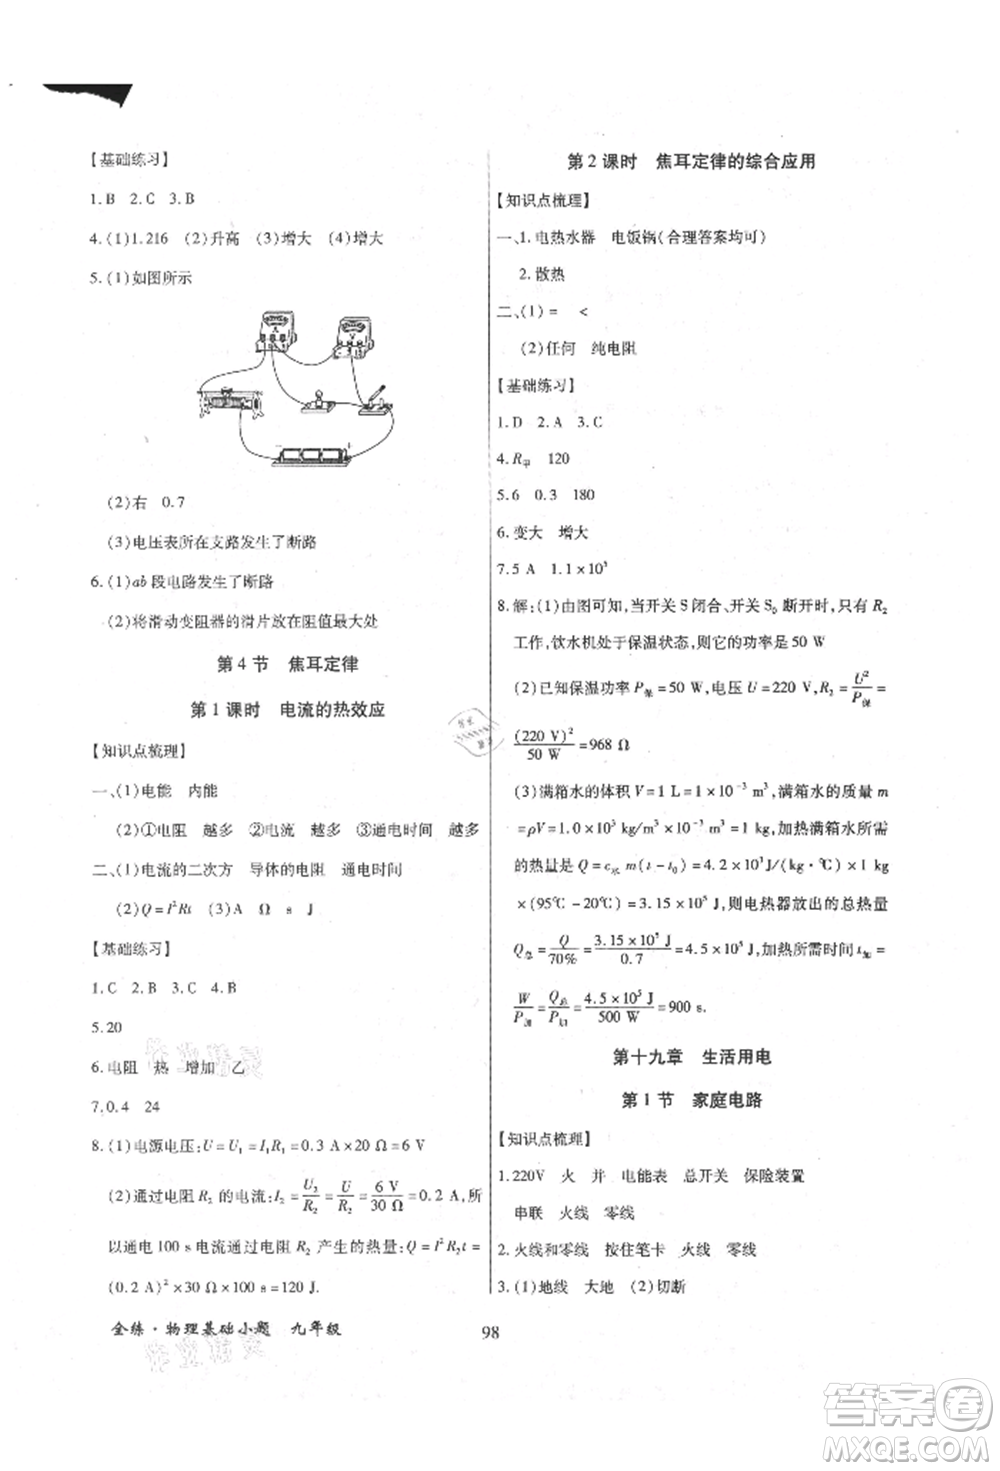 【基础练习】
1. B  2. C  3. B
4. (1)1.216  (2)升高  (3)增大  (4)增大
5. (1)如图所示
(2)右  0.7
(3)电压表所在支路发生了断路
6. (1)ab 段电路发生了断路
(2)将滑动变阻器的滑片放在阻值最大处
第 4 节  焦耳定律
第 1 课时  电流的热效应
【知识点梳理】
一、(1)电能  内能
(2)①电阻  越多  ②电流  越多  ③通电时间  越多
二、(1)电流的二次方  导体的电阻  通电时间
(2)Q=I²Rt  (3)A  Ω  s  J
【基础练习】
1. C  2. B  3. C  4. B
5. 20
6. 电阻  热  增加  乙
7. 0.4  24
8. (1)电源电压:U=U₁=I₁R₁=0.3 A×20 Ω=6 V
(2)通过电阻 R₂ 的电流:I₂=U₂/R₂=U/R₂=6 V/30 Ω=0.2 A,所
以通电 100 s 电流通过电阻 R₂ 产生的热量:Q=I²R₂t=
(0.2 A)²×30 Ω×100 s=120 J.
第 2 课时  焦耳定律的综合应用
【知识点梳理】
一、1. 电热水器  电饭锅(合理答案均可)
2. 散热
二、(1)=  <
(2)任何  纯电阻
【基础练习】
1. D  2. A  3. C
4. R甲  120
5. 6  0.3  180
6. 变大  增大
7. 5 A  1.1×10³
8. 解:(1)由图可知,当开关 S 闭合、开关 S₀ 断开时,只有 R₂
工作,饮水机处于保温状态,则它的功率是 50 W
(2)已知保温功率 P保=50 W,电压 U=220 V,R₂=U²/P保=
(220 V)²/50 W=968 Ω
(3)满箱水的体积 V=1 L=1×10⁻³ m³,满箱水的质量 m
=ρV=1.0×10³ kg/m³×1×10⁻³ m³=1 kg,加热满箱水所需
的热量是 Q=c水 m(t-t₀)=4.2×10³ J/(kg·℃)×1 kg
×(95℃-20℃)=3.15×10⁵ J,电热器放出的总热量
Q总=Q/70%=3.15×10⁵ J/0.7=4.5×10⁵ J,加热所需时间 t加=
W/P加=Q总/P加=4.5×10⁵ J/500 W=900 s.
第十九章  生活用电
第 1 节  家庭电路
【知识点梳理】
1. 220V  火  并  电能表  总开关  保险装置
串联  火线  零线
2. 火线和零线  按住笔卡  火线  零线
3. (1)地线  大地  (2)切断
全练·物理基础小题  九年级
98
答案圈
MXQE.COM